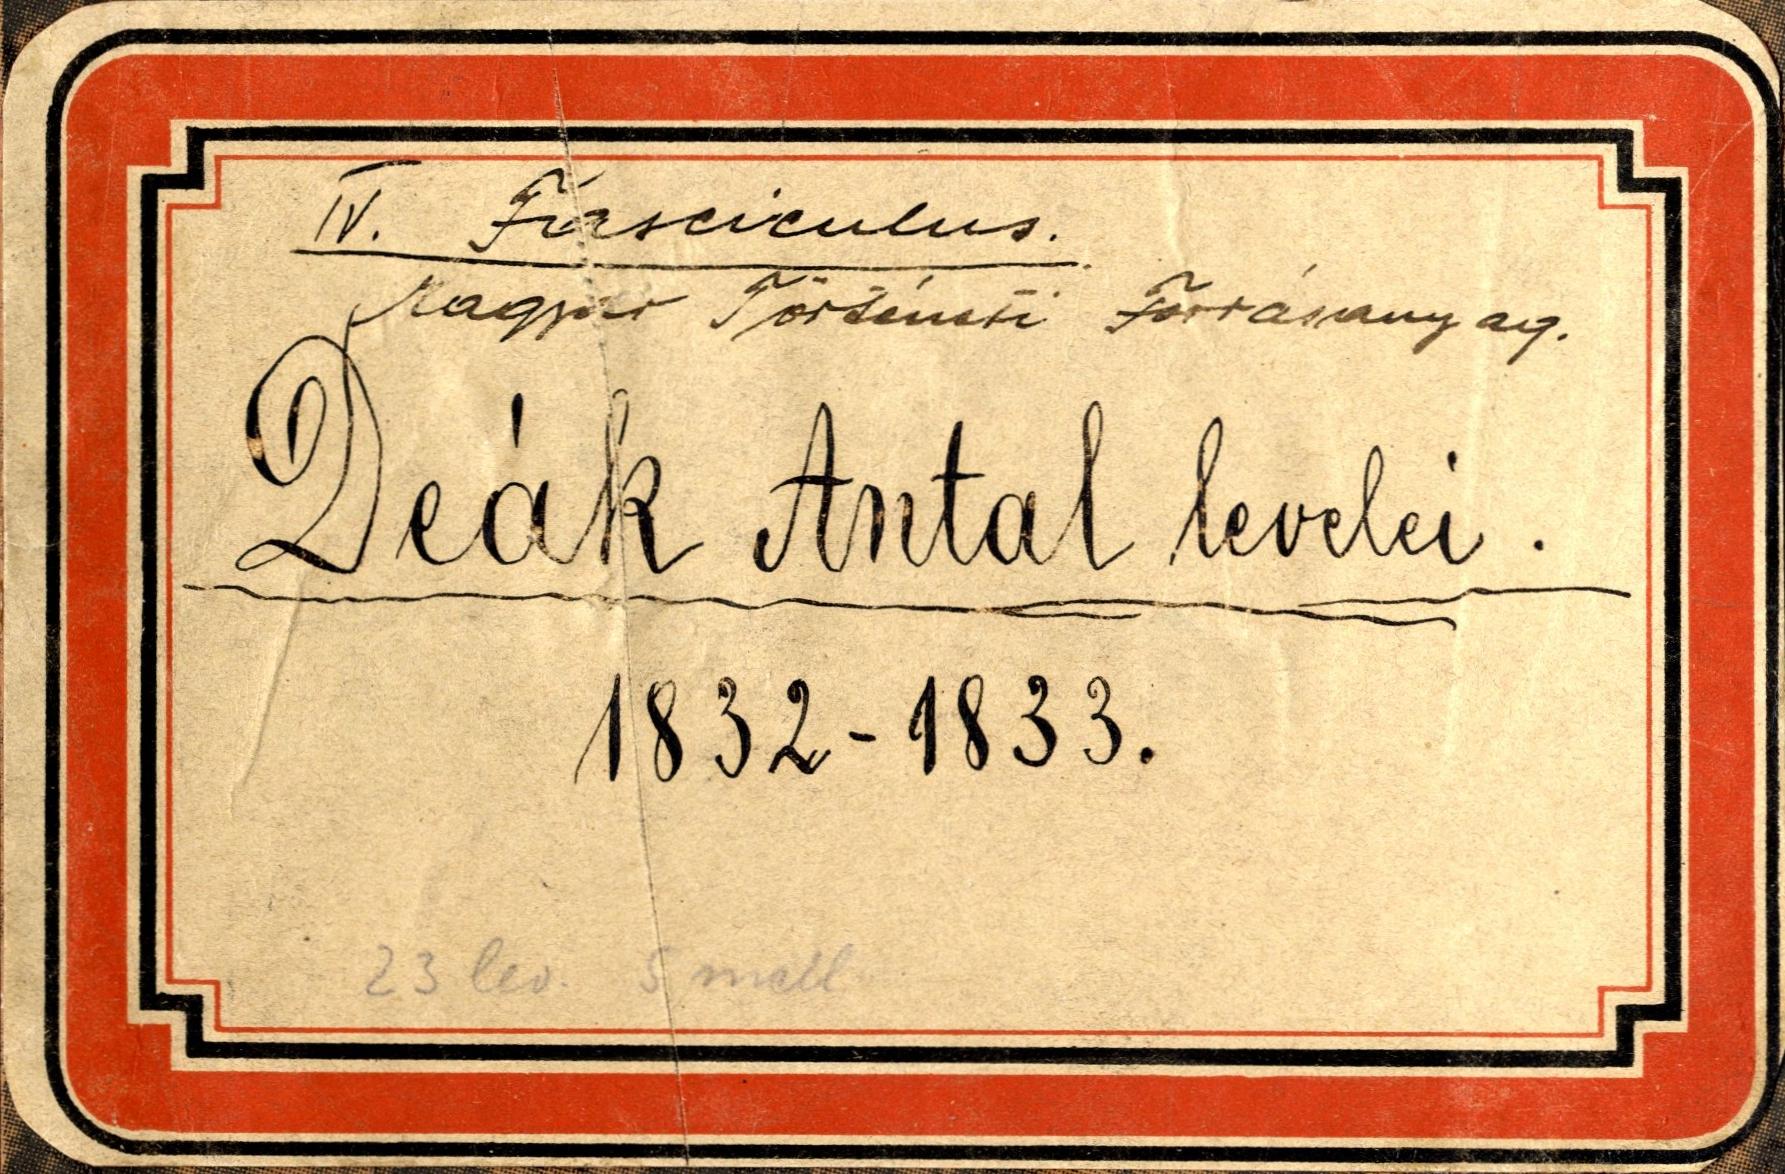 IV. Fasciculus.
Magyar Történeti Forrásanyag.
Deák Antal levelei.
1832-1833.
23 lev. 5 mell